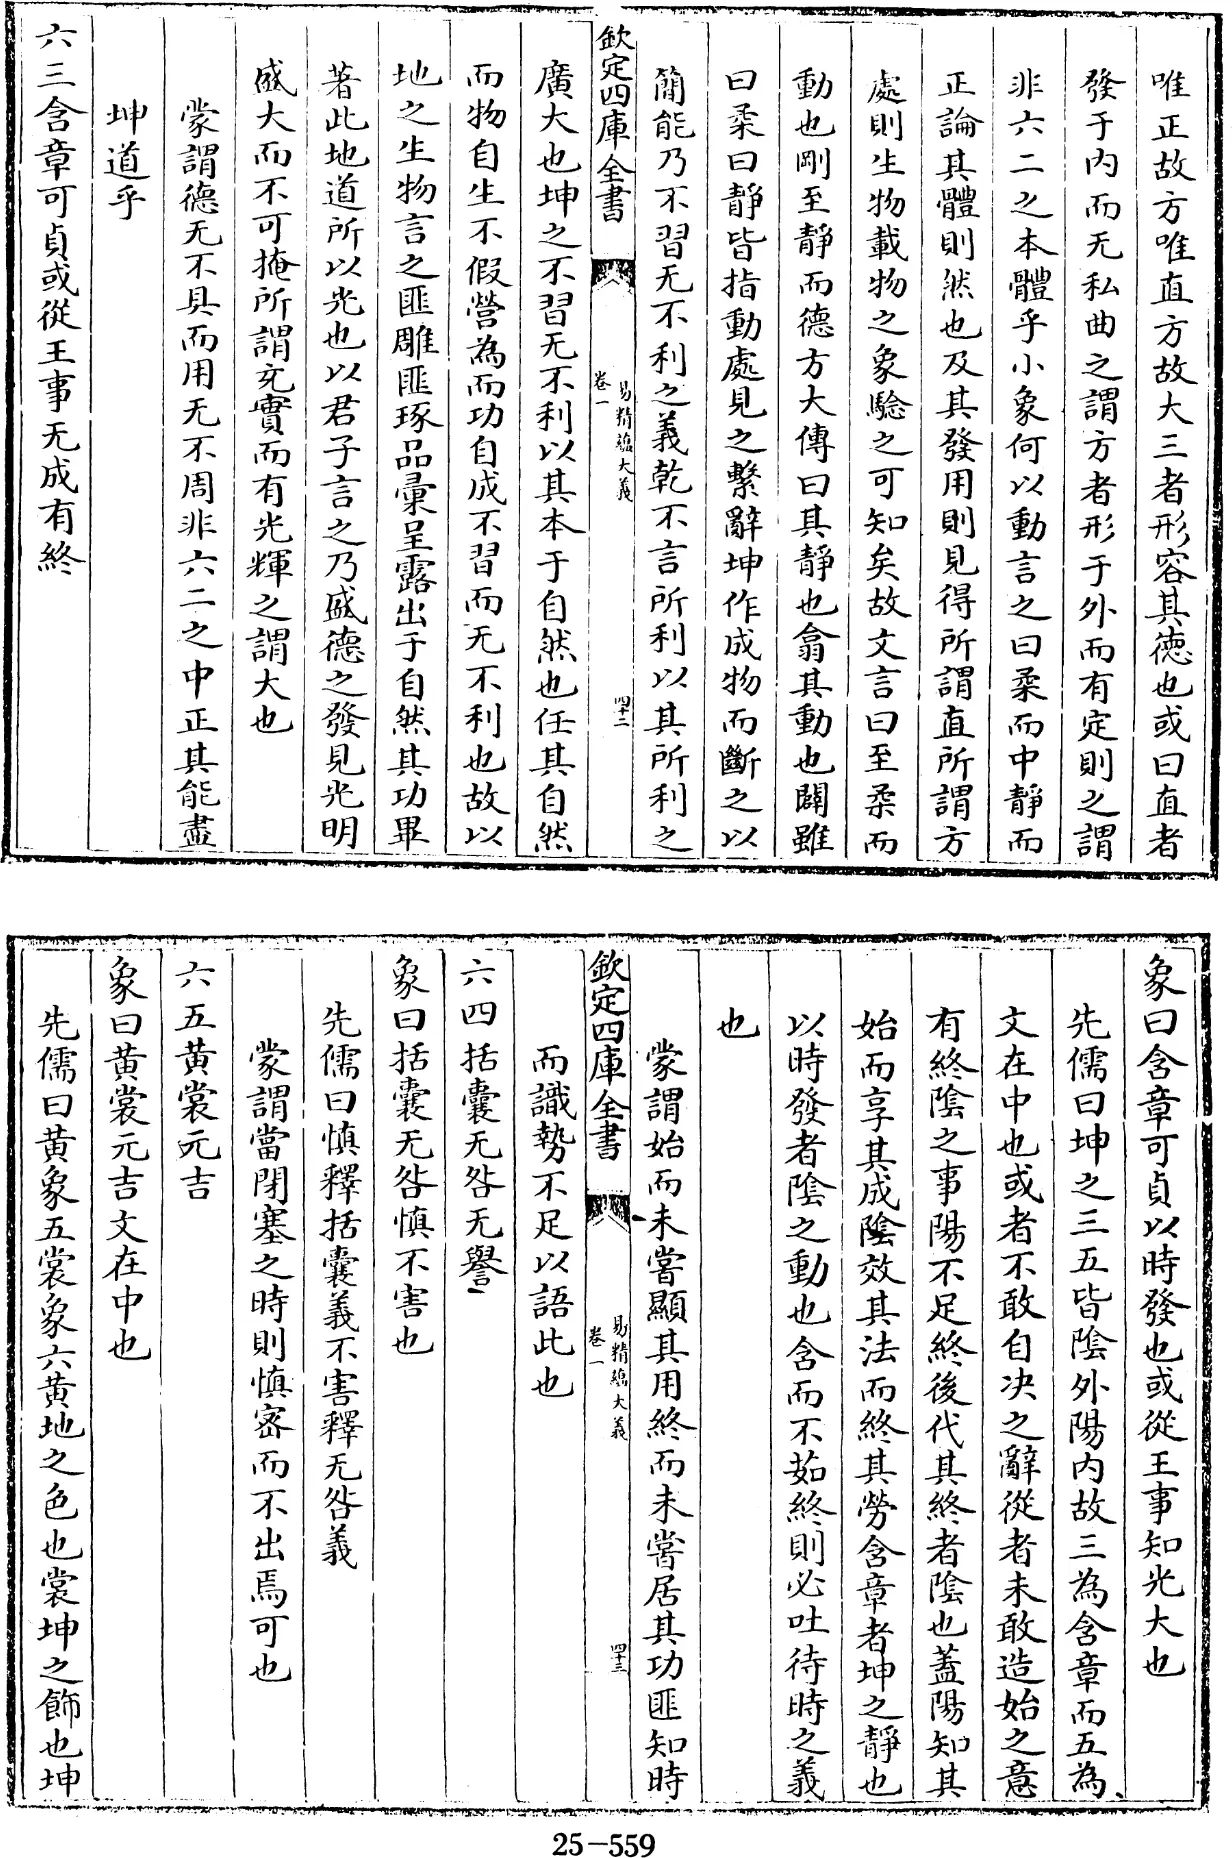 唯正故方唯直方故大三者形容其德也或曰直者
發于内而无私曲之謂方者形于外而有定則之謂
非六二之本體乎小象何以動言之曰柔而中靜而
正論其體則然也及其發用則見得所謂直所謂方
處則生物載物之象驗之可知矣故文言曰至柔而
動也剛至靜而德方大傳曰其靜也翕其動也闢雖
曰柔曰靜皆指動處見之繫辭坤作成物而斷之以
簡能乃不習无不利之義乾不言所利以其所利之
欽定四庫全書
易精蘊大義
卷一
四十二
廣大也坤之不習无不利以其本于自然也任其自然
而物自生不假營為而功自成不習而无不利也故以
地之生物言之匪雕匪琢品彙呈露出于自然其功畢
著此地道所以光也以君子言之乃盛德之發見光明
盛大而不可掩所謂充實而有光輝之謂大也
蒙謂德无不具而用无不周非六二之中正其能盡
坤道乎
六三含章可貞或從王事无成有終
象曰含章可貞以時發也或從王事知光大也
先儒曰坤之三五皆陰外陽内故三為含章而五為
文在中也或者不敢自决之辭從者未敢造始之意
有終陰之事陽不足終後代其終者陰也蓋陽知其
始而享其成陰效其法而終其勞含章者坤之靜也
以時發者陰之動也含而不茹終則必吐待時之義
也
蒙謂始而未嘗顯其用終而未嘗居其功匪知時
欽定四庫全書
易精蘊大義
卷一
四十三
而識勢不足以語此也
六四括囊无咎无譽
象曰括囊无咎慎不害也
先儒曰慎釋括囊義不害釋无咎義
蒙謂當閉塞之時則慎密而不出焉可也
六五黄裳元吉
象曰黄裳元吉文在中也
先儒曰黄象五裳象六黄地之色也裳坤之飾也坤
25-559